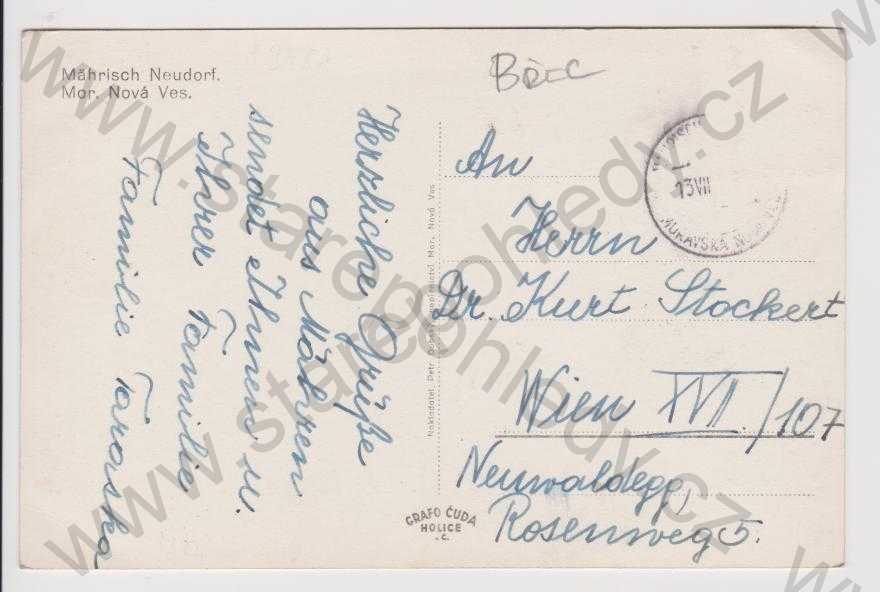 Mährisch Neudorf.
Mor. Nová Ves.
BŘEC
Herzliche Grüße
aus Mähren
sendet Ihnen u.
Ihrer Familie
Familie Taraska
Nakladatel Petr
Mor. Nová Ves
GRAFO ČUDA
HOLICE
13 VII
MORAVSKÁ
An
Herrn
Dr. Kurt Stockert
Wien XVII/107
Neuwaldegg,
Rosenweg 5.
www.starepohledy.cz